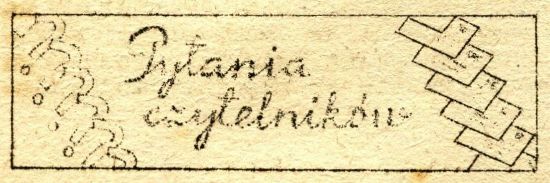 Pytania
czytelników